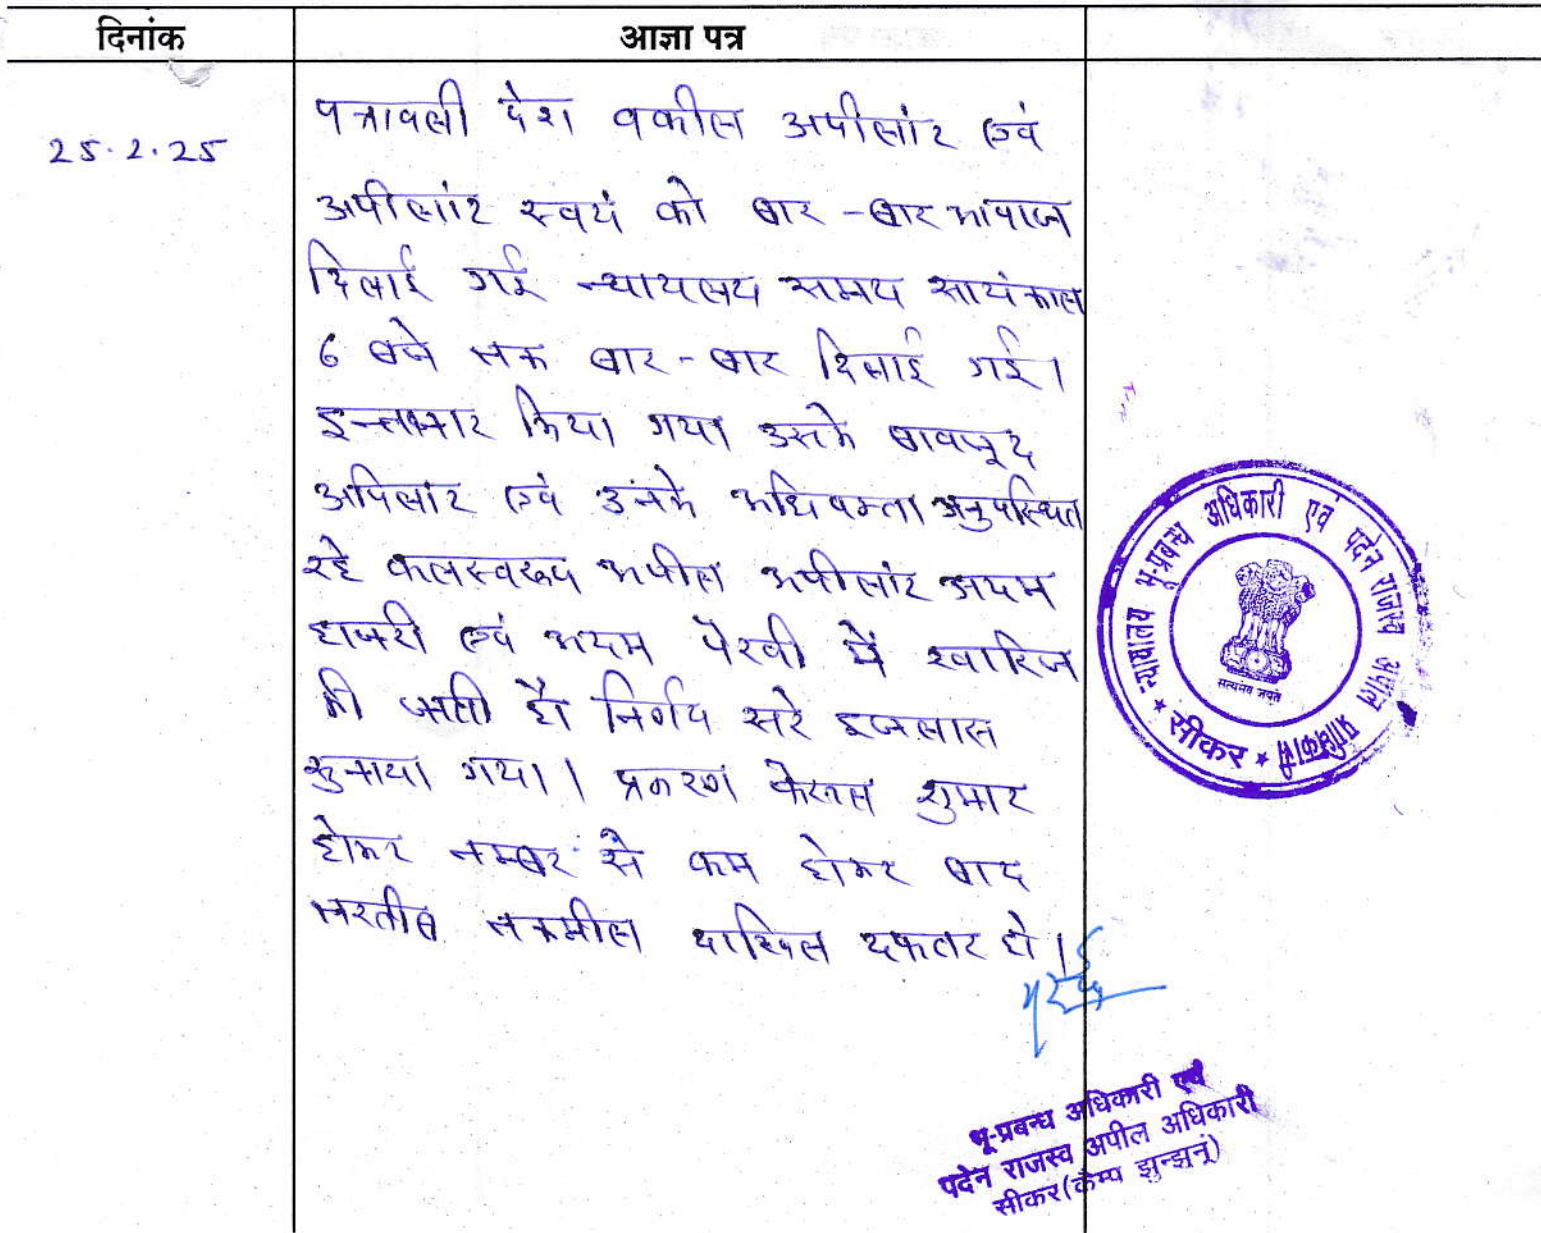 दिनांक
आज्ञा पत्र
25.2.25
पत्रावली पेश वकील अपीलांट एवं
अपीलांट स्वयं को बार-बार आवाज
दिलाई गई न्यायलय समय सायंकाल
6 बजे तक बार-बार दिलाई गई।
इन्तजार किया गया उसके बावजूद
अपिलांट एवं उनके अधिवक्ता अनुपस्थित
रहे फलस्वरूप अपील अपीलांट अदम
हाजरी एवं अदम पैरवी में खारिज
की जाती है निर्णय सरे इजलास
सुनाया गया। प्रकरण फैसल शुमार
होकर नम्बर से कम होकर बाद
तरतीब तकमील दाखिल दफतर हो।
न्यायालय भू-प्रबन्ध अधिकारी एवं पदेन राजस्व अपील
सत्यमेव जयते
सीकर
भू-प्रबन्ध अधिकारी एवं
पदेन राजस्व अपील अधिकारी
सीकर(कैम्प झुन्झुनूं)